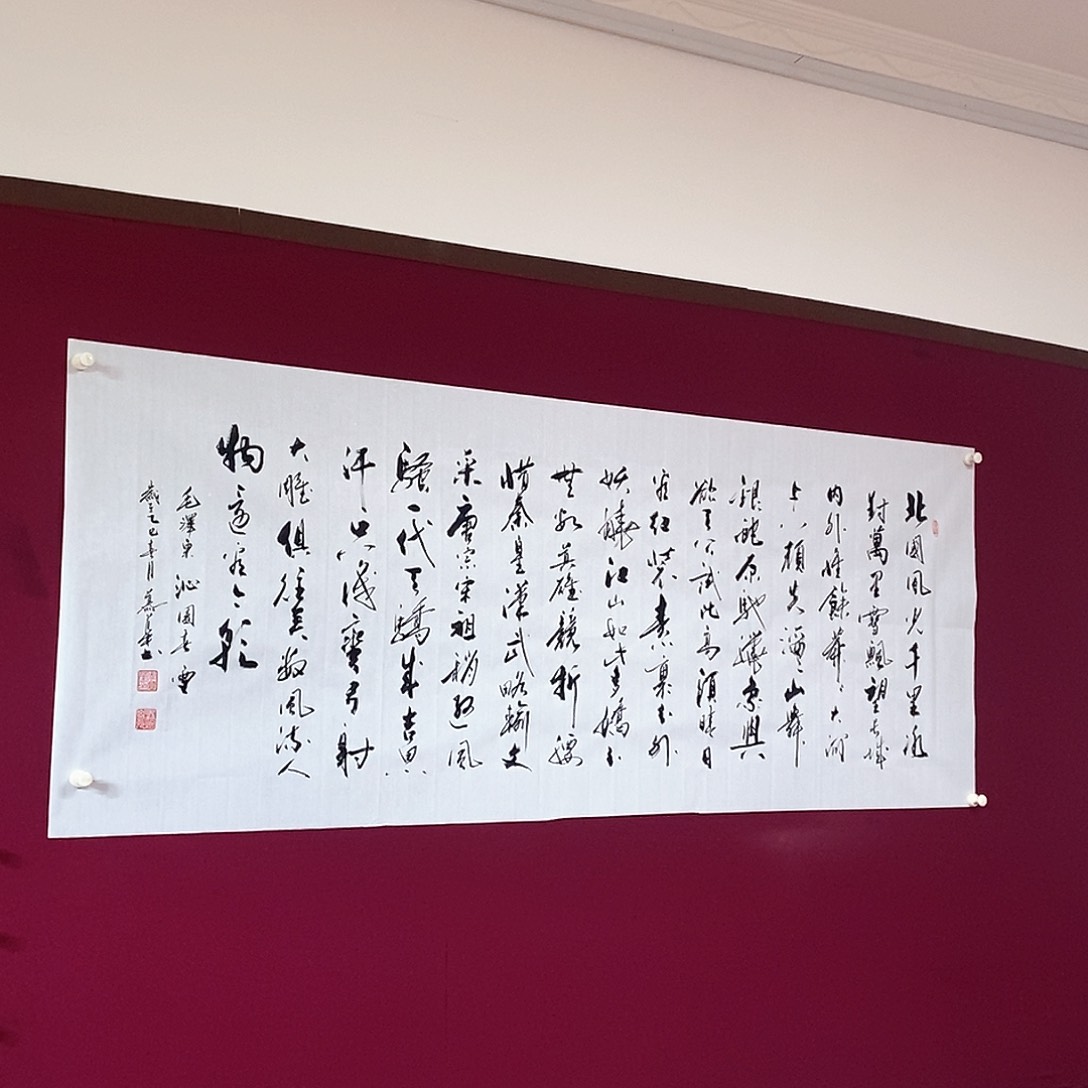 北國風光千里冰
封萬里雪飄望長城
內外惟餘莽〻大河
上下頓失滔〻山舞
銀蛇原馳蠟象與
欲天公試比高須晴日
看紅裝素裹分外
妖嬈江山如此多嬌引
無數英雄競折腰
惜秦皇漢武略輸文
采唐宗宋祖稍遜風
騷一代天驕成吉思
汗只識彎弓射
大雕俱往矣數風流人
物還看今朝
毛澤東 沁園春 雪
歲在乙巳春月